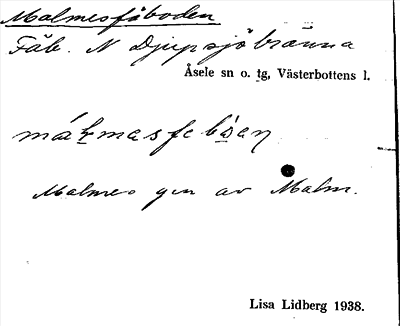 Malmesfäboden
Fäb. N Djupsjöbränna
Åsele sn o. tg, Västerbottens l.
Malmes gen av Malm.
Lisa Lidberg 1938.